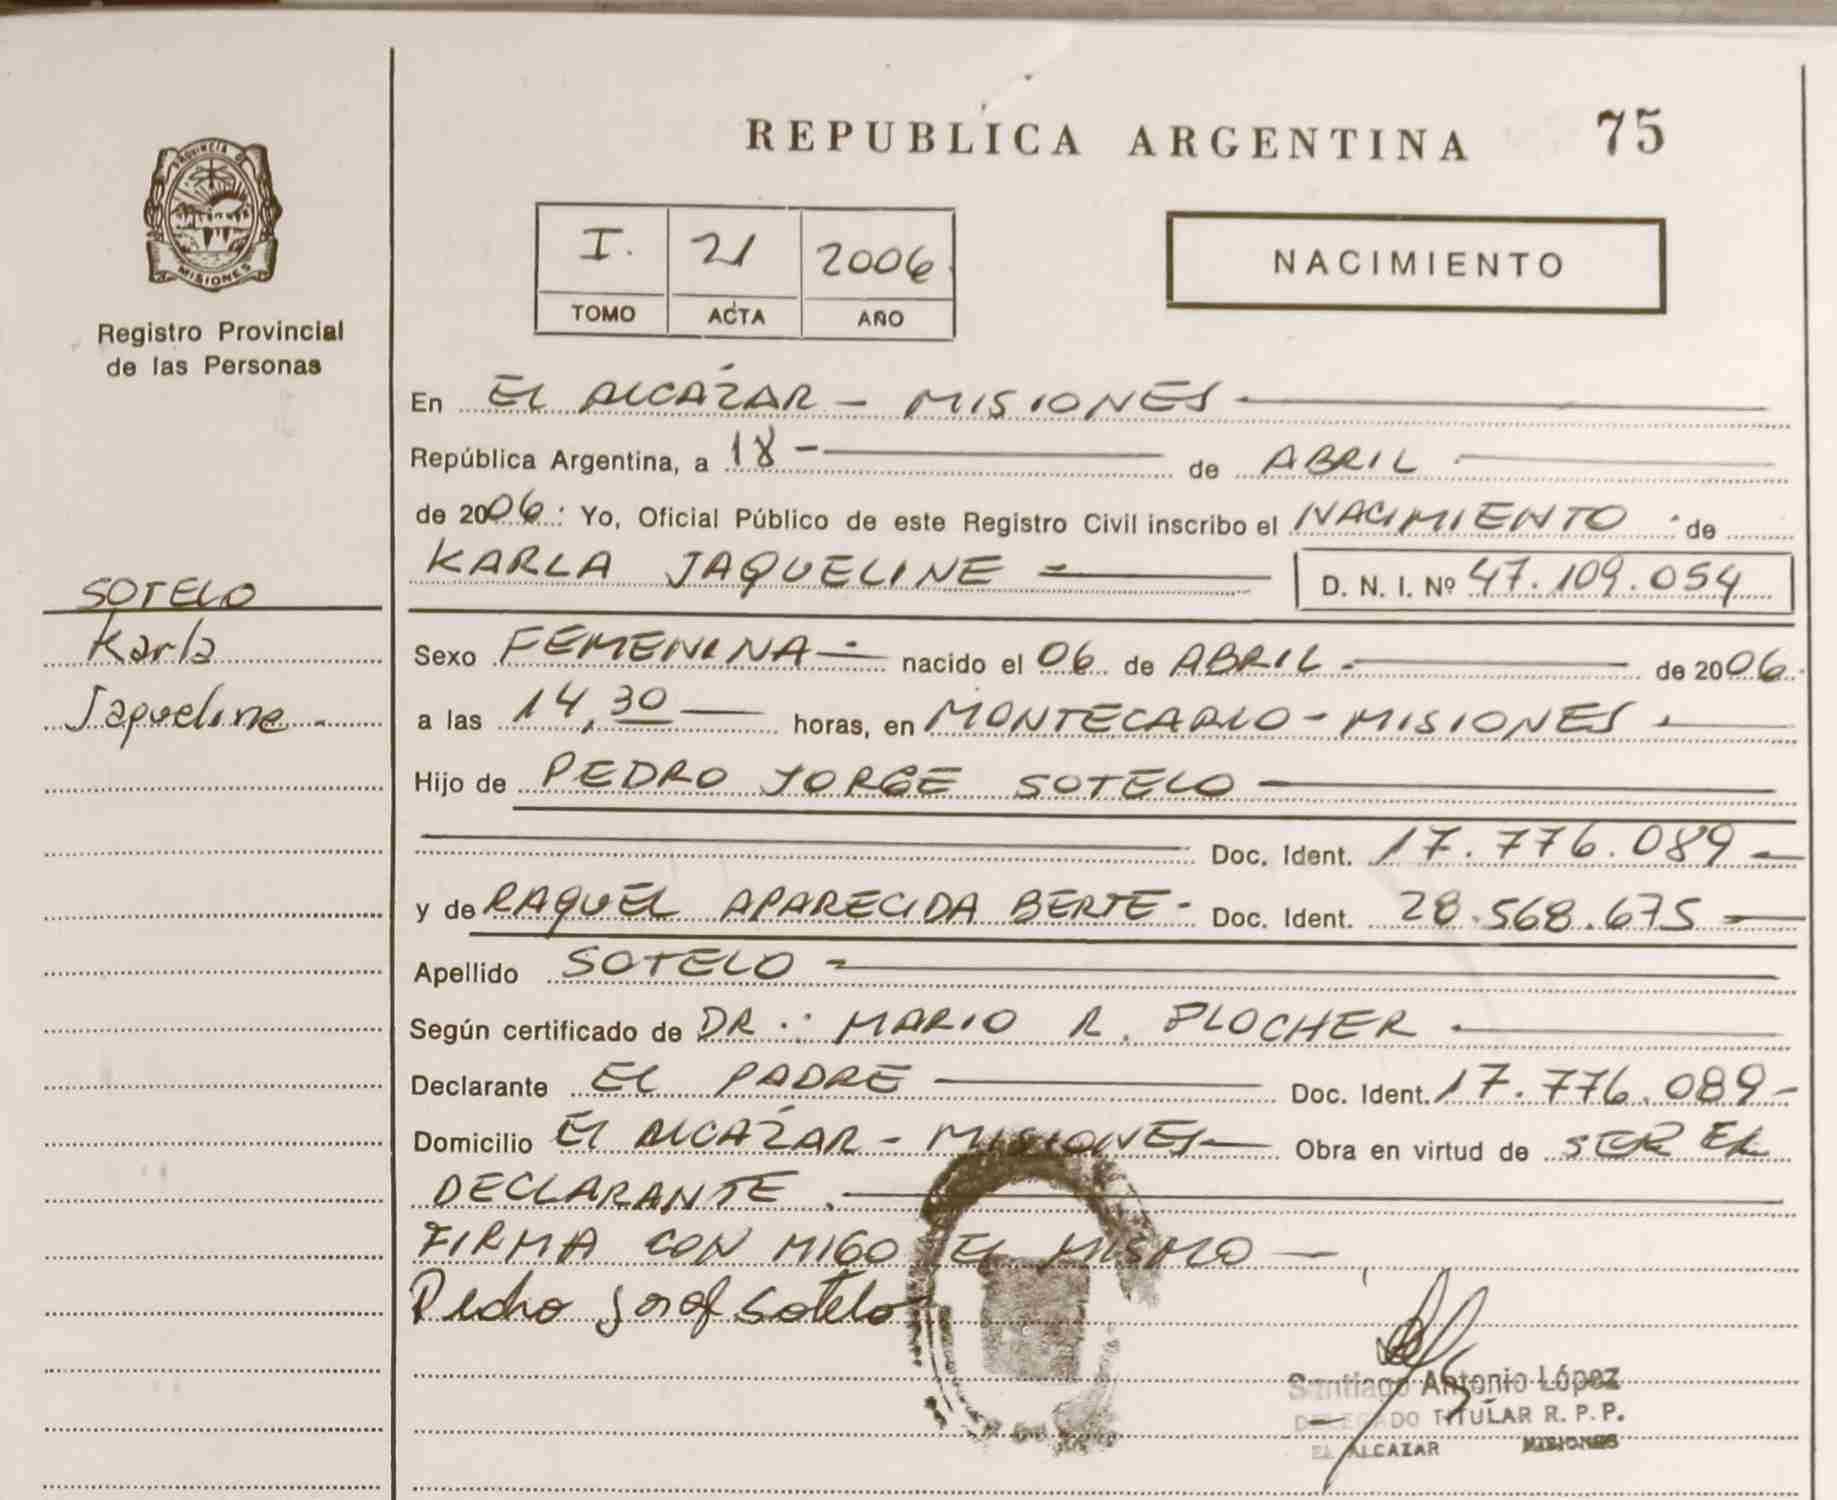 REPUBLICA ARGENTINA 75
PROVINCIA DE
MISIONES
Registro Provincial
de las Personas
I. 21 2006
TOMO ACTA AÑO
NACIMIENTO
En EL ALCAZAR - MISIONES
República Argentina, a 18 - de ABRIL
de 2006 : Yo, Oficial Público de este Registro Civil inscribo el NACIMIENTO de
KARLA JAQUELINE D. N. I. Nº 47.109.054
SOTELO
Karla
Jaqueline
Sexo FEMENINA nacido el 06 de ABRIL de 2006
a las 14,30 horas, en MONTECARLO - MISIONES
Hijo de PEDRO JORGE SOTELO
Doc. Ident. 17.776.089
y de RAQUEL APARECIDA BERTE - Doc. Ident. 28.568.675
Apellido SOTELO
Según certificado de DR.: MARIO R. PLOCHER
Declarante EL PADRE Doc. Ident. 17.776.089
Domicilio EL ALCAZAR - MISIONES Obra en virtud de SER EL
DECLARANTE.
FIRMA CON MIGO EL MISMO
Pedro Sotelo
Santiago Antonio López
DELEGADO TITULAR R. P. P.
EL ALCAZAR MISIONES